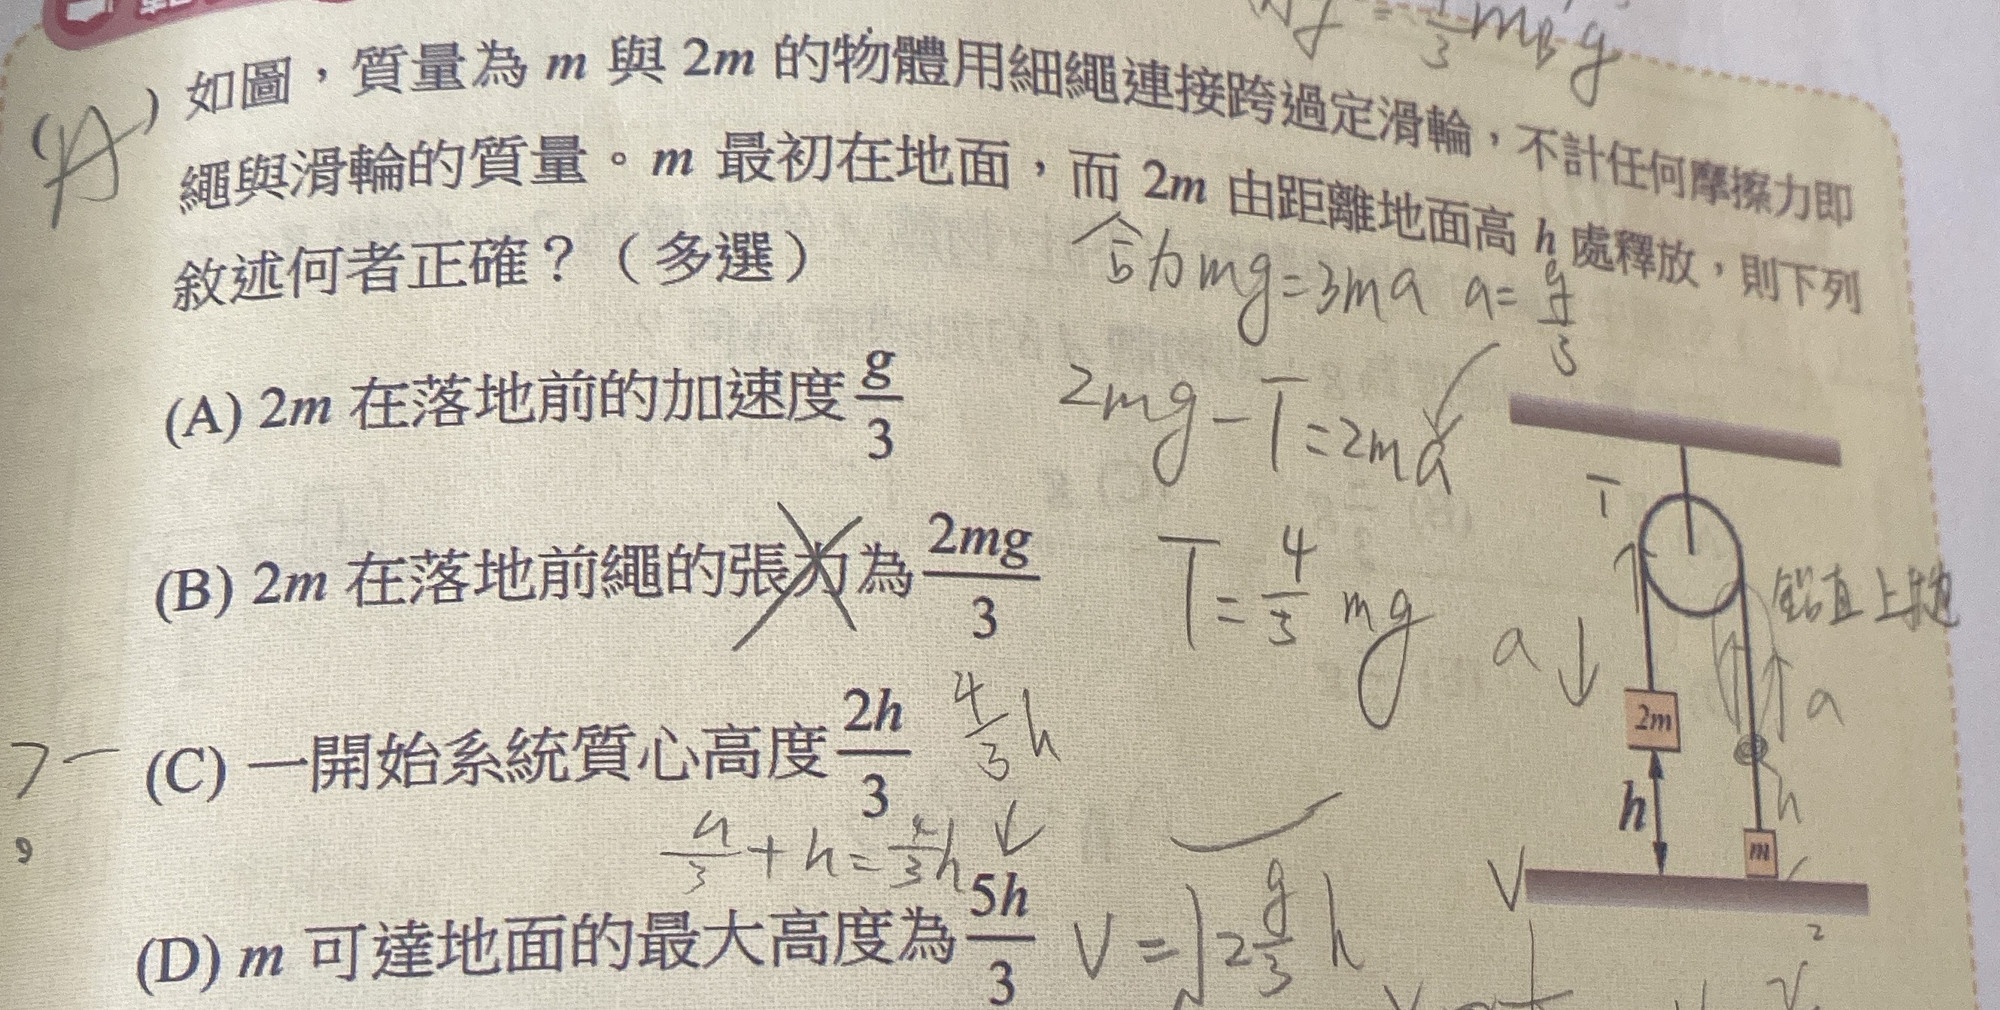 = 1/3 mB g
(A) 如圖，質量為 m 與 2m 的物體用細繩連接跨過定滑輪，不計任何摩擦力即
繩與滑輪的質量。m 最初在地面，而 2m 由距離地面高 h 處釋放，則下列
敘述何者正確？（多選）
合力 mg=3ma a= g/3
(A) 2m 在落地前的加速度 g/3
2mg-T=2ma
(B) 2m 在落地前繩的張力為 2mg/3
T= 4/3 mg
T
a
鉛直上拋
a
2m
h
h
m
(C) 一開始系統質心高度 2h/3
4/3 h
h/3 + h = 4/3 h
(D) m 可達地面的最大高度為 5h/3
V=√2 g/3 h
V
2